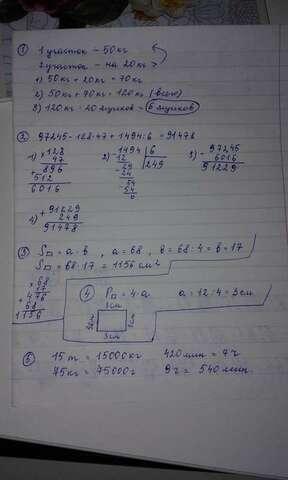 ① 1 участок – 50 кг
2 участок – на 20 кг >
1) 50 кг + 20 кг = 70 кг
2) 50 кг + 70 кг = 120 кг (всего)
3) 120 кг : 20 ящиков = 6 ящиков
② 97245 – 128·47 + 1494:6 = 91478
1) × 128
47
896
512
6016
2) 1494 | 6
12 | 249
29
24
54
54
0
3) – 97245
6016
91229
4) + 91229
249
91478
③ S□ = a·b, a = 68, b = 68:4 = b = 17
S□ = 68·17 = 1156 см²
× 68
17
+ 476
68
1156
④ P□ = 4·a a = 12:4 = 3 см
3 см
3 см
⑤ 15 т = 15000 кг 420 мин = 7 ч
75 кг = 75000 г 9 ч = 540 мин.